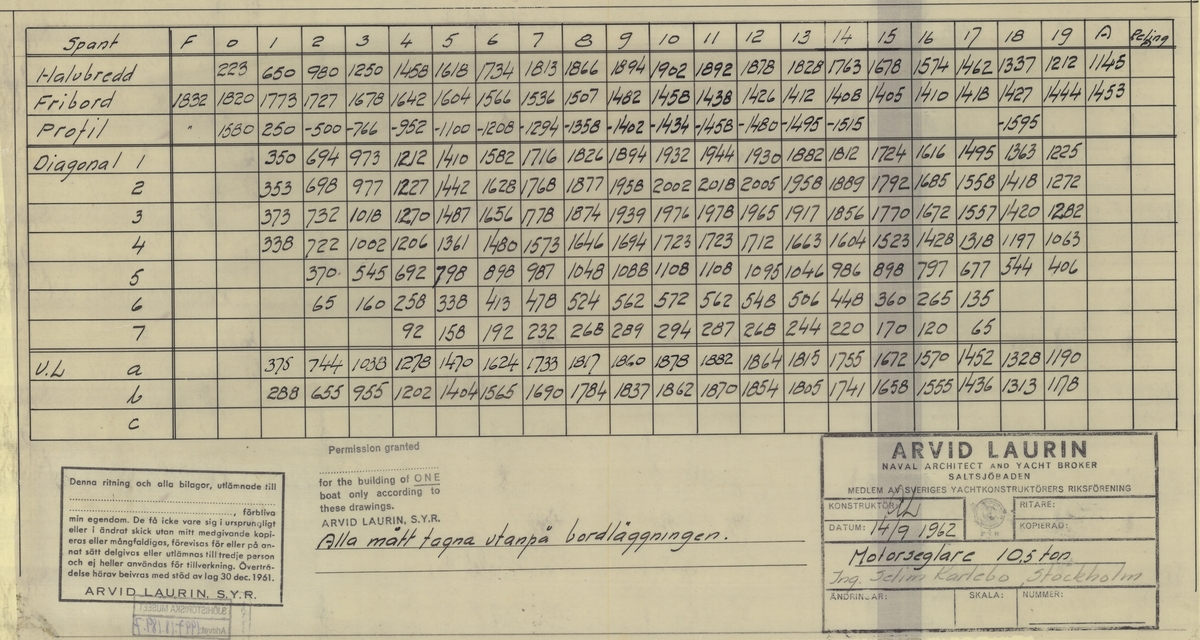 Spant F 0 1 2 3 4 5 6 7 8 9 10 11 12 13 14 15 16 17 18 19 A
Halvbredd 223 650 980 1250 1458 1618 1734 1813 1866 1894 1902 1892 1878 1828 1763 1678 1574 1462 1337 1212 1145
Fribord 1832 1820 1773 1727 1678 1642 1604 1566 1536 1507 1482 1458 1438 1426 1412 1408 1405 1410 1418 1427 1444 1453
Profil " 1580 250 -500 -766 -952 -1100 -1208 -1294 -1358 -1402 -1434 -1458 -1480 -1495 -1515 -1595
Diagonal 1 350 694 973 1212 1410 1582 1716 1826 1894 1932 1944 1930 1882 1812 1724 1616 1495 1363 1225
2 353 698 977 1227 1442 1628 1768 1877 1958 2002 2018 2005 1958 1889 1792 1685 1558 1418 1272
3 373 732 1018 1270 1487 1656 1778 1874 1939 1976 1978 1965 1917 1856 1770 1672 1557 1420 1282
4 338 722 1002 1206 1361 1480 1573 1646 1694 1723 1723 1712 1663 1604 1523 1428 1318 1197 1063
5 370 545 692 798 898 987 1048 1088 1108 1108 1095 1046 986 898 797 677 544 406
6 65 160 258 338 413 478 524 562 572 562 548 506 448 360 265 135
7 92 158 192 232 268 289 294 287 268 244 220 170 120 65
V.L a 375 744 1038 1278 1470 1624 1733 1817 1860 1878 1882 1864 1815 1755 1672 1570 1452 1328 1190
b 288 655 955 1202 1404 1565 1690 1784 1837 1862 1870 1854 1805 1741 1658 1555 1436 1313 1178
c
Denna ritning och alla bilagor, utlämnade till
, förbliva
min egendom. De få icke vare sig i ursprungligt
eller i ändrat skick utan mitt medgivande kopi-
eras eller mångfaldigas, förevisas för eller på an-
nat sätt delgivas eller utlämnas till tredje person
och ej heller användas för tillverkning. Överträ-
delse härav beivras med stöd av lag 30 dec. 1961.
ARVID LAURIN, S.Y.R.
Permission granted
for the building of ONE
boat only according to
these drawings.
ARVID LAURIN, S.Y.R.
Alla mått tagna utanpå bordläggningen.
ARVID LAURIN
NAVAL ARCHITECT AND YACHT BROKER
SALTSJÖBADEN
MEDLEM AV SVERIGES YACHTKONSTRUKTÖRERS RIKSFÖRENING
KONSTRUKTÖR: AL RITARE:
DATUM: 14/9 1962 KOPIERAD:
Motorseglare 10,5 ton
Ing. Selim Karlebo, Stockholm
ÄNDRINGAR: SKALA: NUMMER:
SJÖHISTORISKA MUSEET